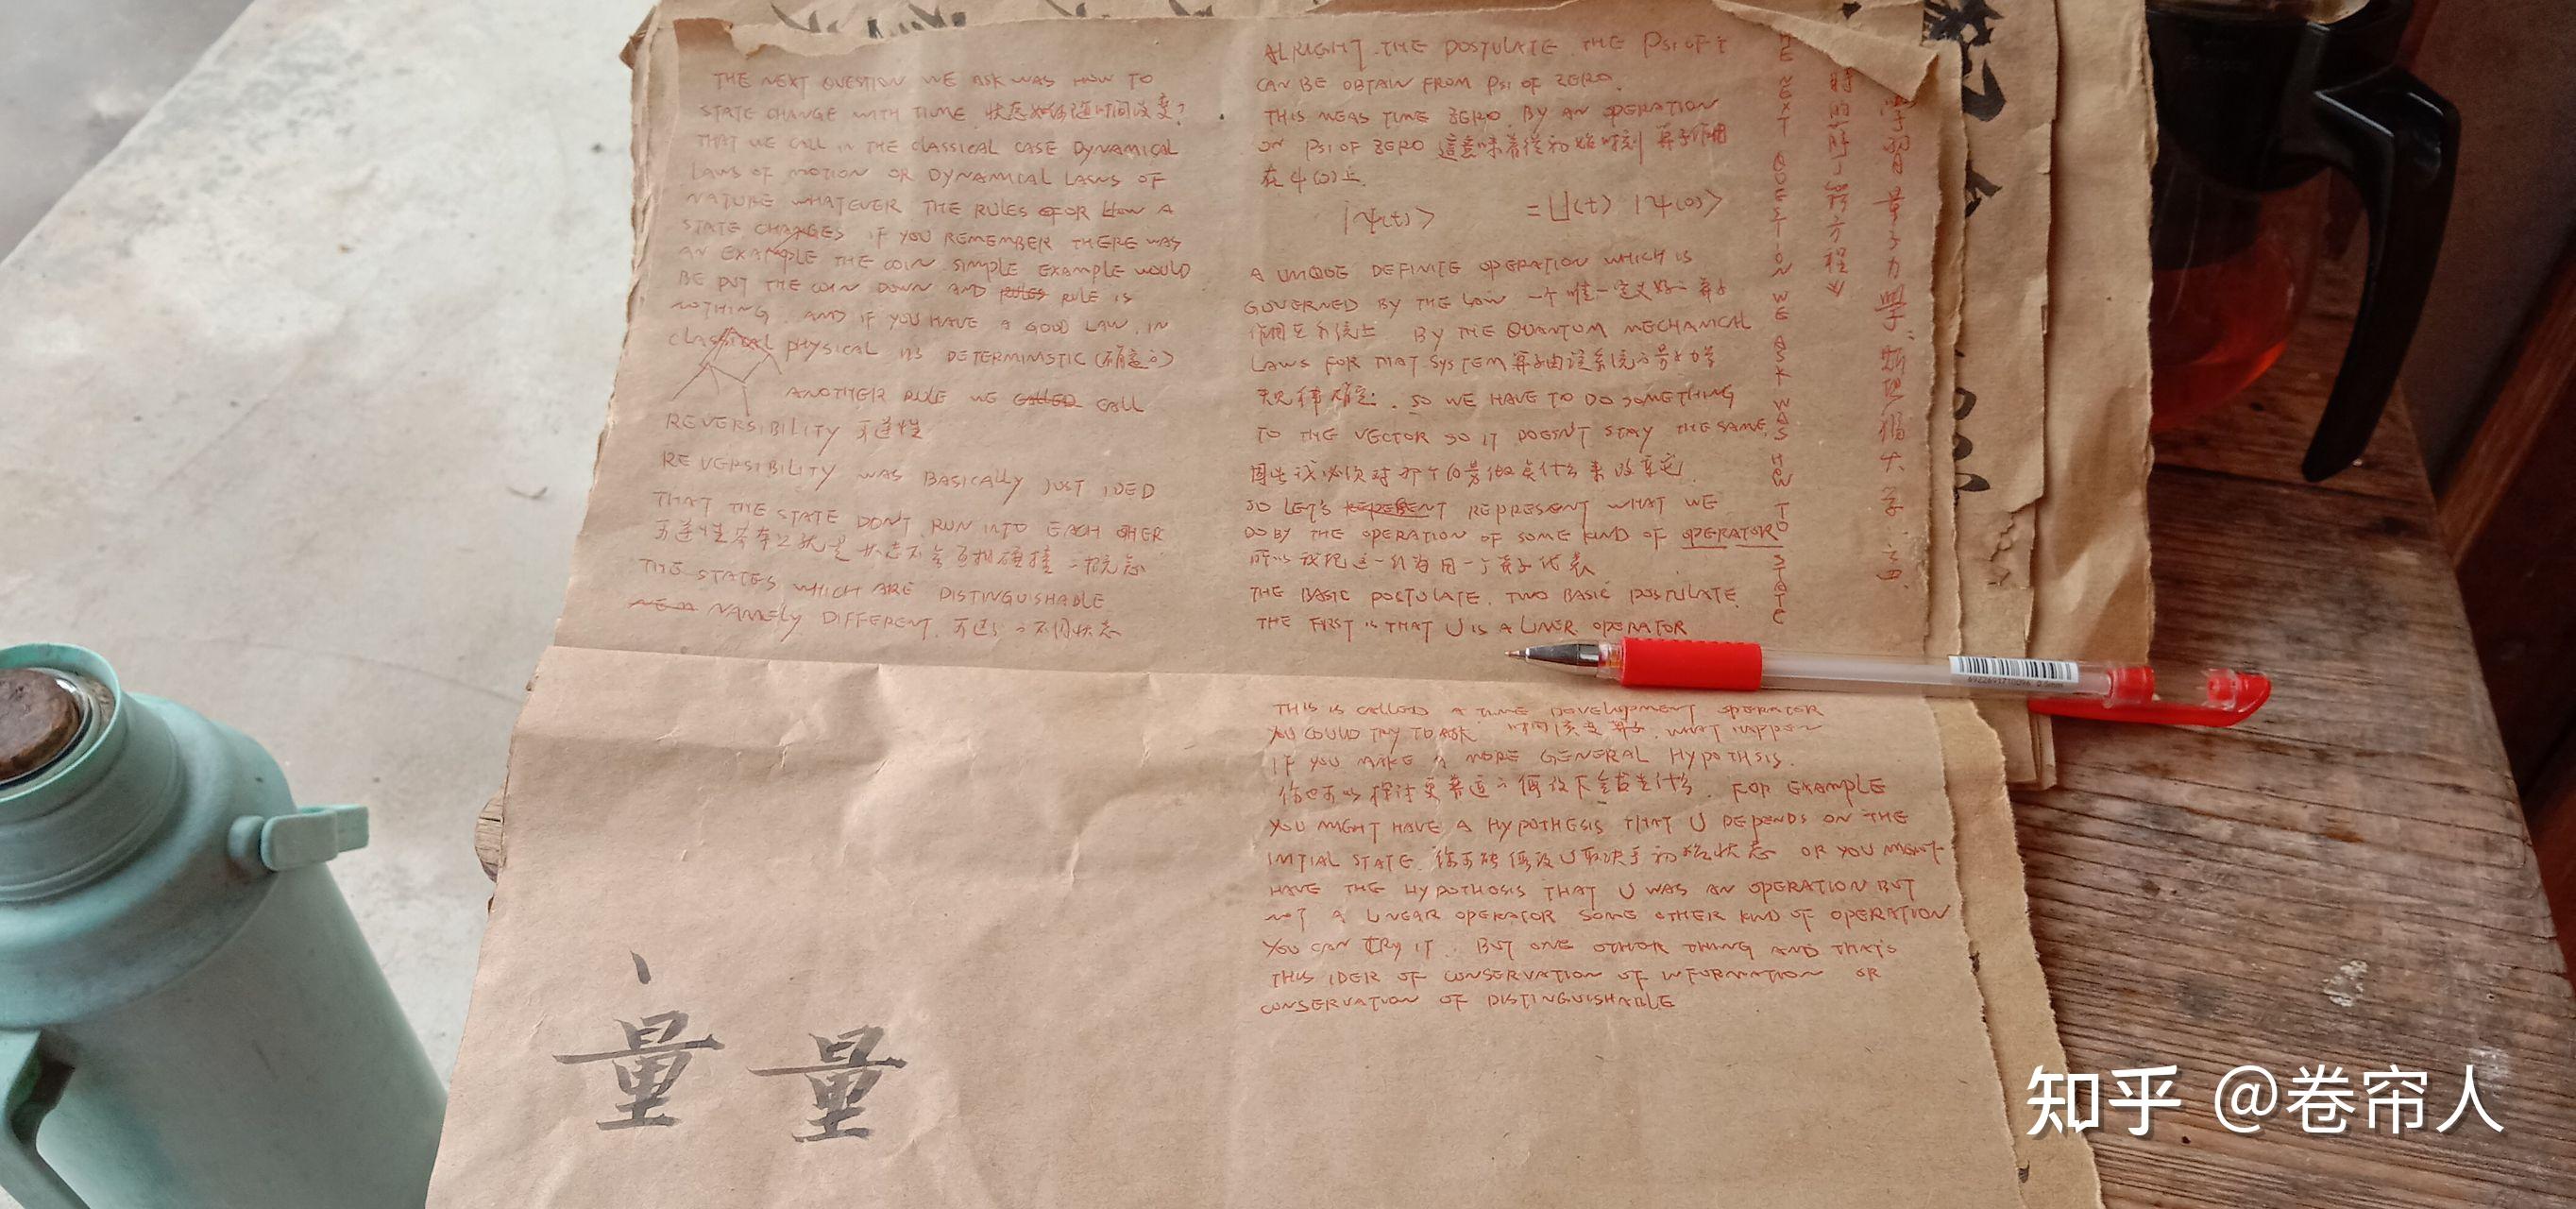 THE NEXT QUESTION WE ASK WAS HOW TO
STATE CHANGE WITH TIME 状态如何随时间改变?
THAT WE CALL IN THE CLASSICAL CASE DYNAMICAL
LAWS OF MOTION OR DYNAMICAL LAWS OF
NATURE WHATEVER THE RULES FOR HOW A
STATE CHANGES IF YOU REMEMBER THERE WAS
AN EXAMPLE THE COIN SIMPLE EXAMPLE WOULD
BE PUT THE COIN DOWN AND RULE IS
NOTHING. AND IF YOU HAVE A GOOD LAW, IN
CLASSICAL PHYSICAL ITS DETERMINISTIC (确定的)
ANOTHER RULE WE CALLED CALL
REVERSIBILITY 可逆性
REVERSIBILITY WAS BASICALLY JUST IDED
THAT THE STATE DON'T RUN INTO EACH OTHER
可逆性基本上就是状态不会互相碰撞的概念
THE STATES WHICH ARE DISTINGUISHABLE
NAMELY DIFFERENT. 不同状态
ALRIGHT. THE POSTULATE THE PSI OF T
CAN BE OBTAIN FROM PSI OF ZERO.
THIS MEAS TIME ZERO BY AN OPERATION
ON PSI OF ZERO 這意味着從初始时刻 算子作用
在 ψ(0) 上
|ψ(t)> = U(t) |ψ(0)>
A UNIQUE DEFINITE OPERATION WHICH IS
GOVERNED BY THE LAW 一个唯一定义好的算子
作用在系统上 BY THE QUANTUM MECHANICAL
LAWS FOR THAT SYSTEM 算子由该系统的量子力学
规律确定. SO WE HAVE TO DO SOMETHING
TO THE VECTOR SO IT DOESN'T STAY THE SAME
因此我必须对那个向量做点什么来改变它
SO LET'S REPRESENT WHAT WE
DO BY THE OPERATION OF SOME KIND OF OPERATOR
所以我把这一行为用一个算子代表
THE BASIC POSTULATE. TWO BASIC POSTULATE
THE FIRST IS THAT U IS A LINER OPERATOR
THIS IS CALLED A TIME DEVELOPMENT OPERATOR
YOU COULD TRY TO ASK 时间演变算子. WHAT HAPPEN
IF YOU MAKE A MORE GENERAL HYPOTHSIS.
你也可以探讨更普适的假设下会发生什么. FOR EXAMPLE
YOU MIGHT HAVE A HYPOTHESIS THAT U DEPENDS ON THE
INITIAL STATE 假设U取决于初始状态 OR YOU MIGHT
HAVE THE HYPOTHOSIS THAT U WAS AN OPERATION BUT
NOT A LINEAR OPERATOR SOME OTHER KIND OF OPERATION
YOU CAN TRY IT. BUT ONE OTHER THING AND THATS
THIS IDER OF CONSERVATION OF INFORMATION OR
CONSERVATION OF DISTINGUISHABLE
THE NEXT QUESTION WE ASK WAS HOW TO STATE
方程
学习量子力学
量 量
6922691710096 0.5mm
知乎 @卷帘人